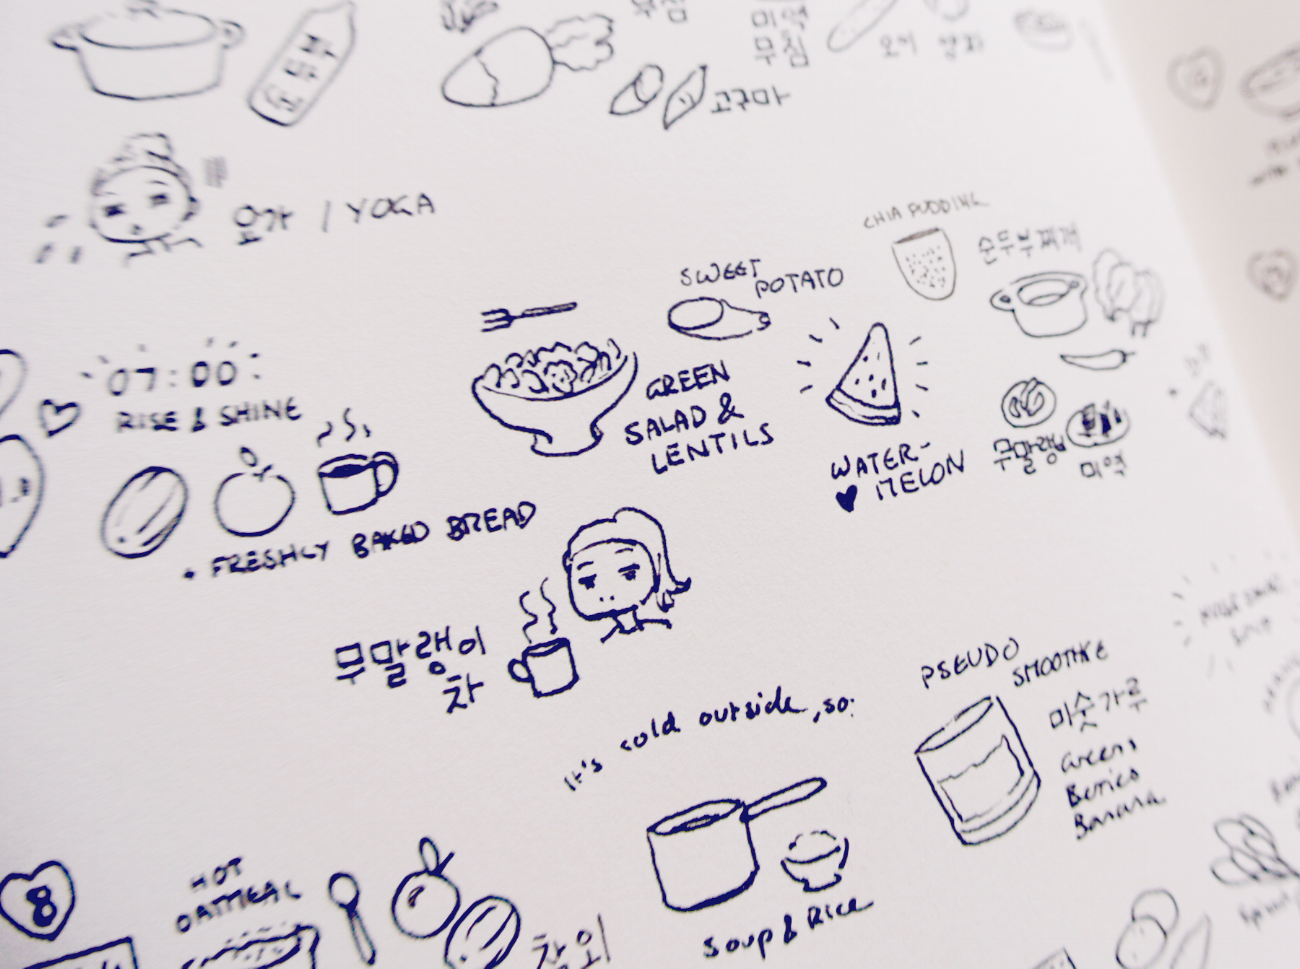 순두부
무침
미역
무침
오이
고구마
요가 / YOGA
CHIA PUDDING
순두부찌개
SWEET
POTATO
07:00
RISE & SHINE
GREEN
SALAD &
LENTILS
WATER-
MELON
무말랭이
미역
• FRESHLY BAKED BREAD
무말랭이
차
It's cold outside, so:
PSEUDO
SMOOTHIE
미숫가루
Greens
Berries
Banana
8
HOT
OATMEAL
참외
Soup & Rice